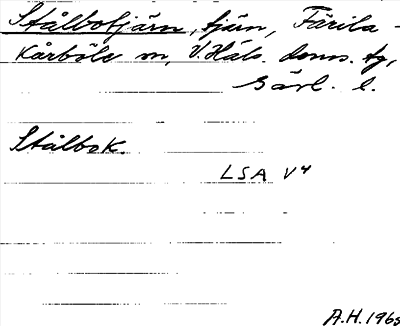 Stålbotjärn, tjärn, Färila -
Kårböle sn, V.Häls. doms. tg,
Gävl. l.
Stålbok.
LSA V4
A.H. 1965